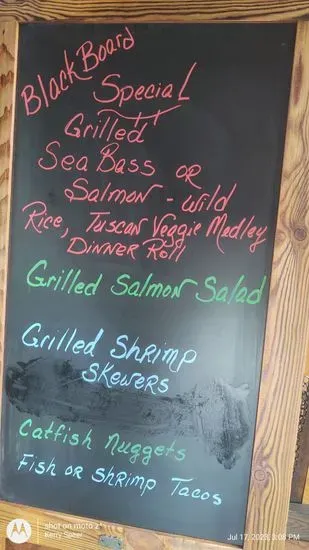 BlackBoard
Special
Grilled
Sea Bass or
Salmon - Wild
Rice, Tuscan Veggie Medley
Dinner Roll
Grilled Salmon Salad
Grilled Shrimp
Skewers
Catfish Nuggets
Fish or Shrimp Tacos
shot on moto z⁴
Kerry Speer
Jul 17, 2023, 3:08 PM